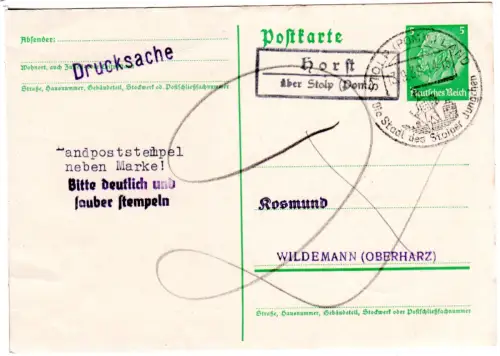 Postkarte
Absender:
Drucksache
Straße, Hausnummer, Gebäudeteil, Stockwerk od. Postschließfachnummer
Horst
über Stolp (Pom.)
5
Deutsches Reich
Die Stadt des Stolper Jungchen
andpoststempel
neben Marke!
Bitte deutlich und
sauber stempeln
Kosmund
WILDEMANN (OBERHARZ)
Straße, Hausnummer, Gebäudeteil, Stockwerk oder Postschließfachnummer